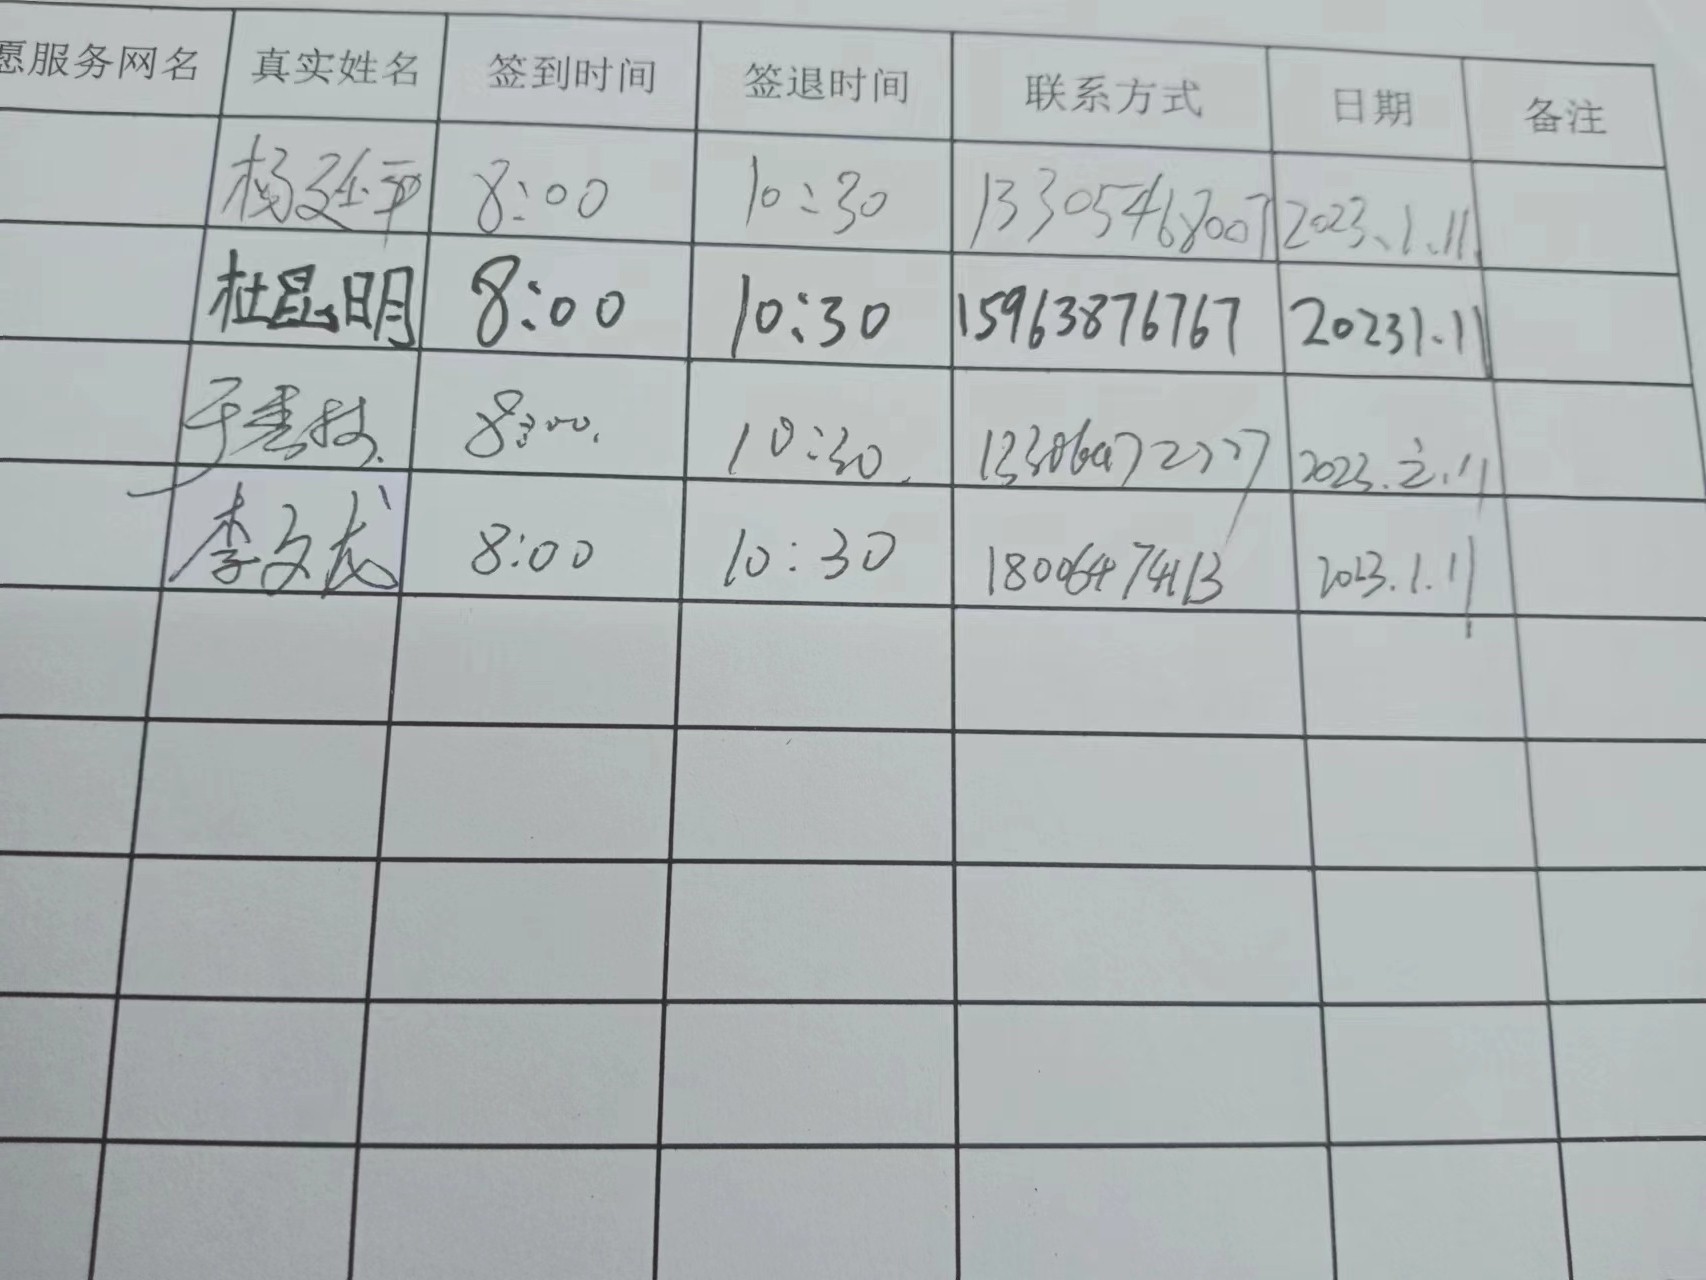 愿服务网名 真实姓名 签到时间 签退时间 联系方式 日期 备注
杨延平 8:00 10:30 13305468007 2023.1.11
杜昆明 8:00 10:30 15963876767 20231.11
于惠枝 8:00. 10:30. 2023.
李文成 8:00 10:30 18006474113 2023.1.11